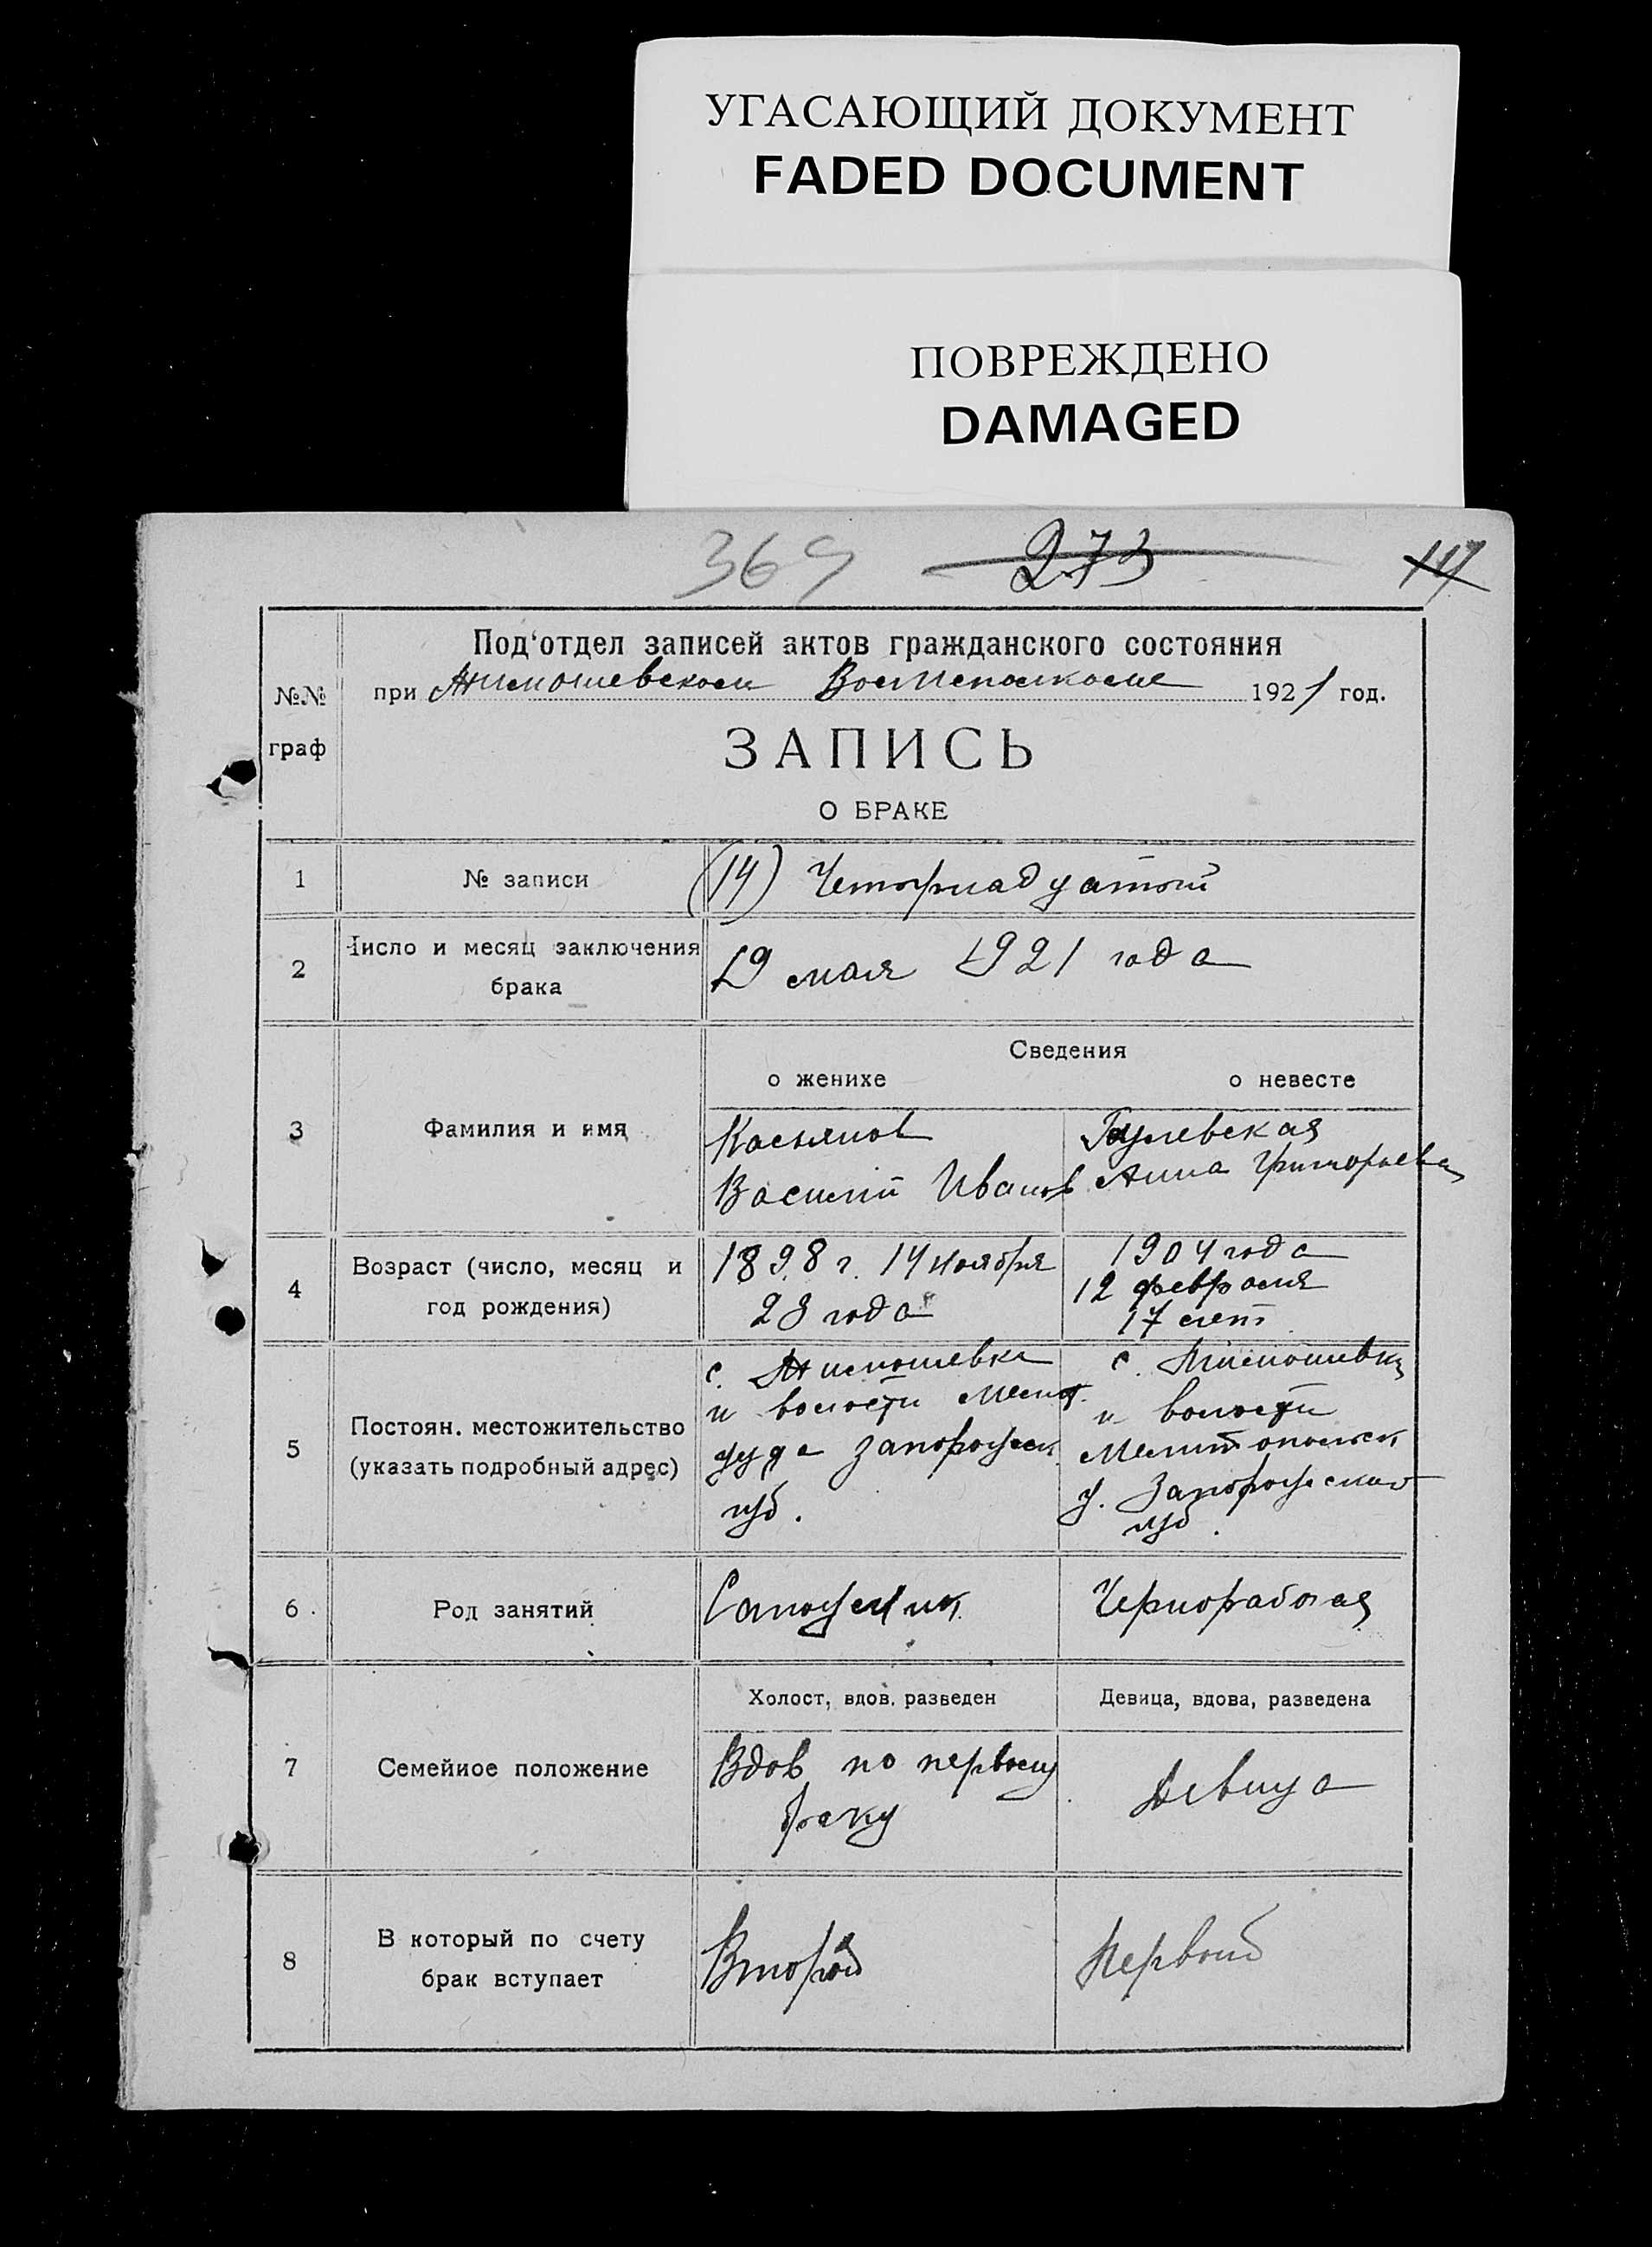 УГАСАЮЩИЙ ДОКУМЕНТ
FADED DOCUMENT
ПОВРЕЖДЕНО
DAMAGED
369 273
№№ граф
Под'отдел записей актов гражданского состояния
при Тимошевском Волисполкоме 1921 год.
ЗАПИСЬ
О БРАКЕ
1 № записи (14) Четырнадцатый
2 Число и месяц заключения брака 19 мая 1921 года
Сведения
о женихе о невесте
3 Фамилия и имя
Касьянов
Василий Иванов
Гулевская
Анна Григорьева
4 Возраст (число, месяц и год рождения)
1898 г. 14 ноября
23 года
1904 года
12 февраля
17 лет
5 Постоян. местожительство (указать подробный адрес)
с. Тимошевка
и волости Мелит.
уезда Запорожск.
губ.
с. Тимошевки
и волости
Мелитопольск
у. Запорожской
губ.
6. Род занятий Сапожник Чернорабочая
Холост, вдов, разведен Девица, вдова, разведена
7 Семейное положение
Вдов по первому
браку
Девица
8 В который по счету брак вступает Второй Первый